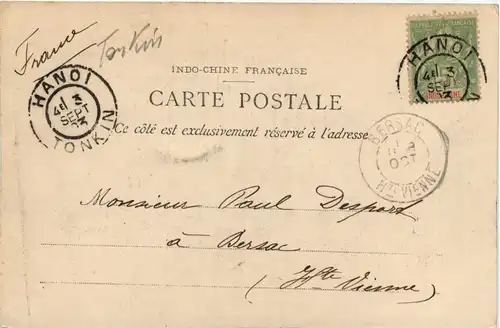 France
Tonkin
HANOI
3
SEPT
TONKIN
HANOI
3
SEPT
INDO-CHINE FRANÇAISE
CARTE POSTALE
Ce côté est exclusivement réservé à l'adresse
BERSAC
OCT
Hte VIENNE
Monsieur Paul Desport
à Bersac
(Hte Vienne)